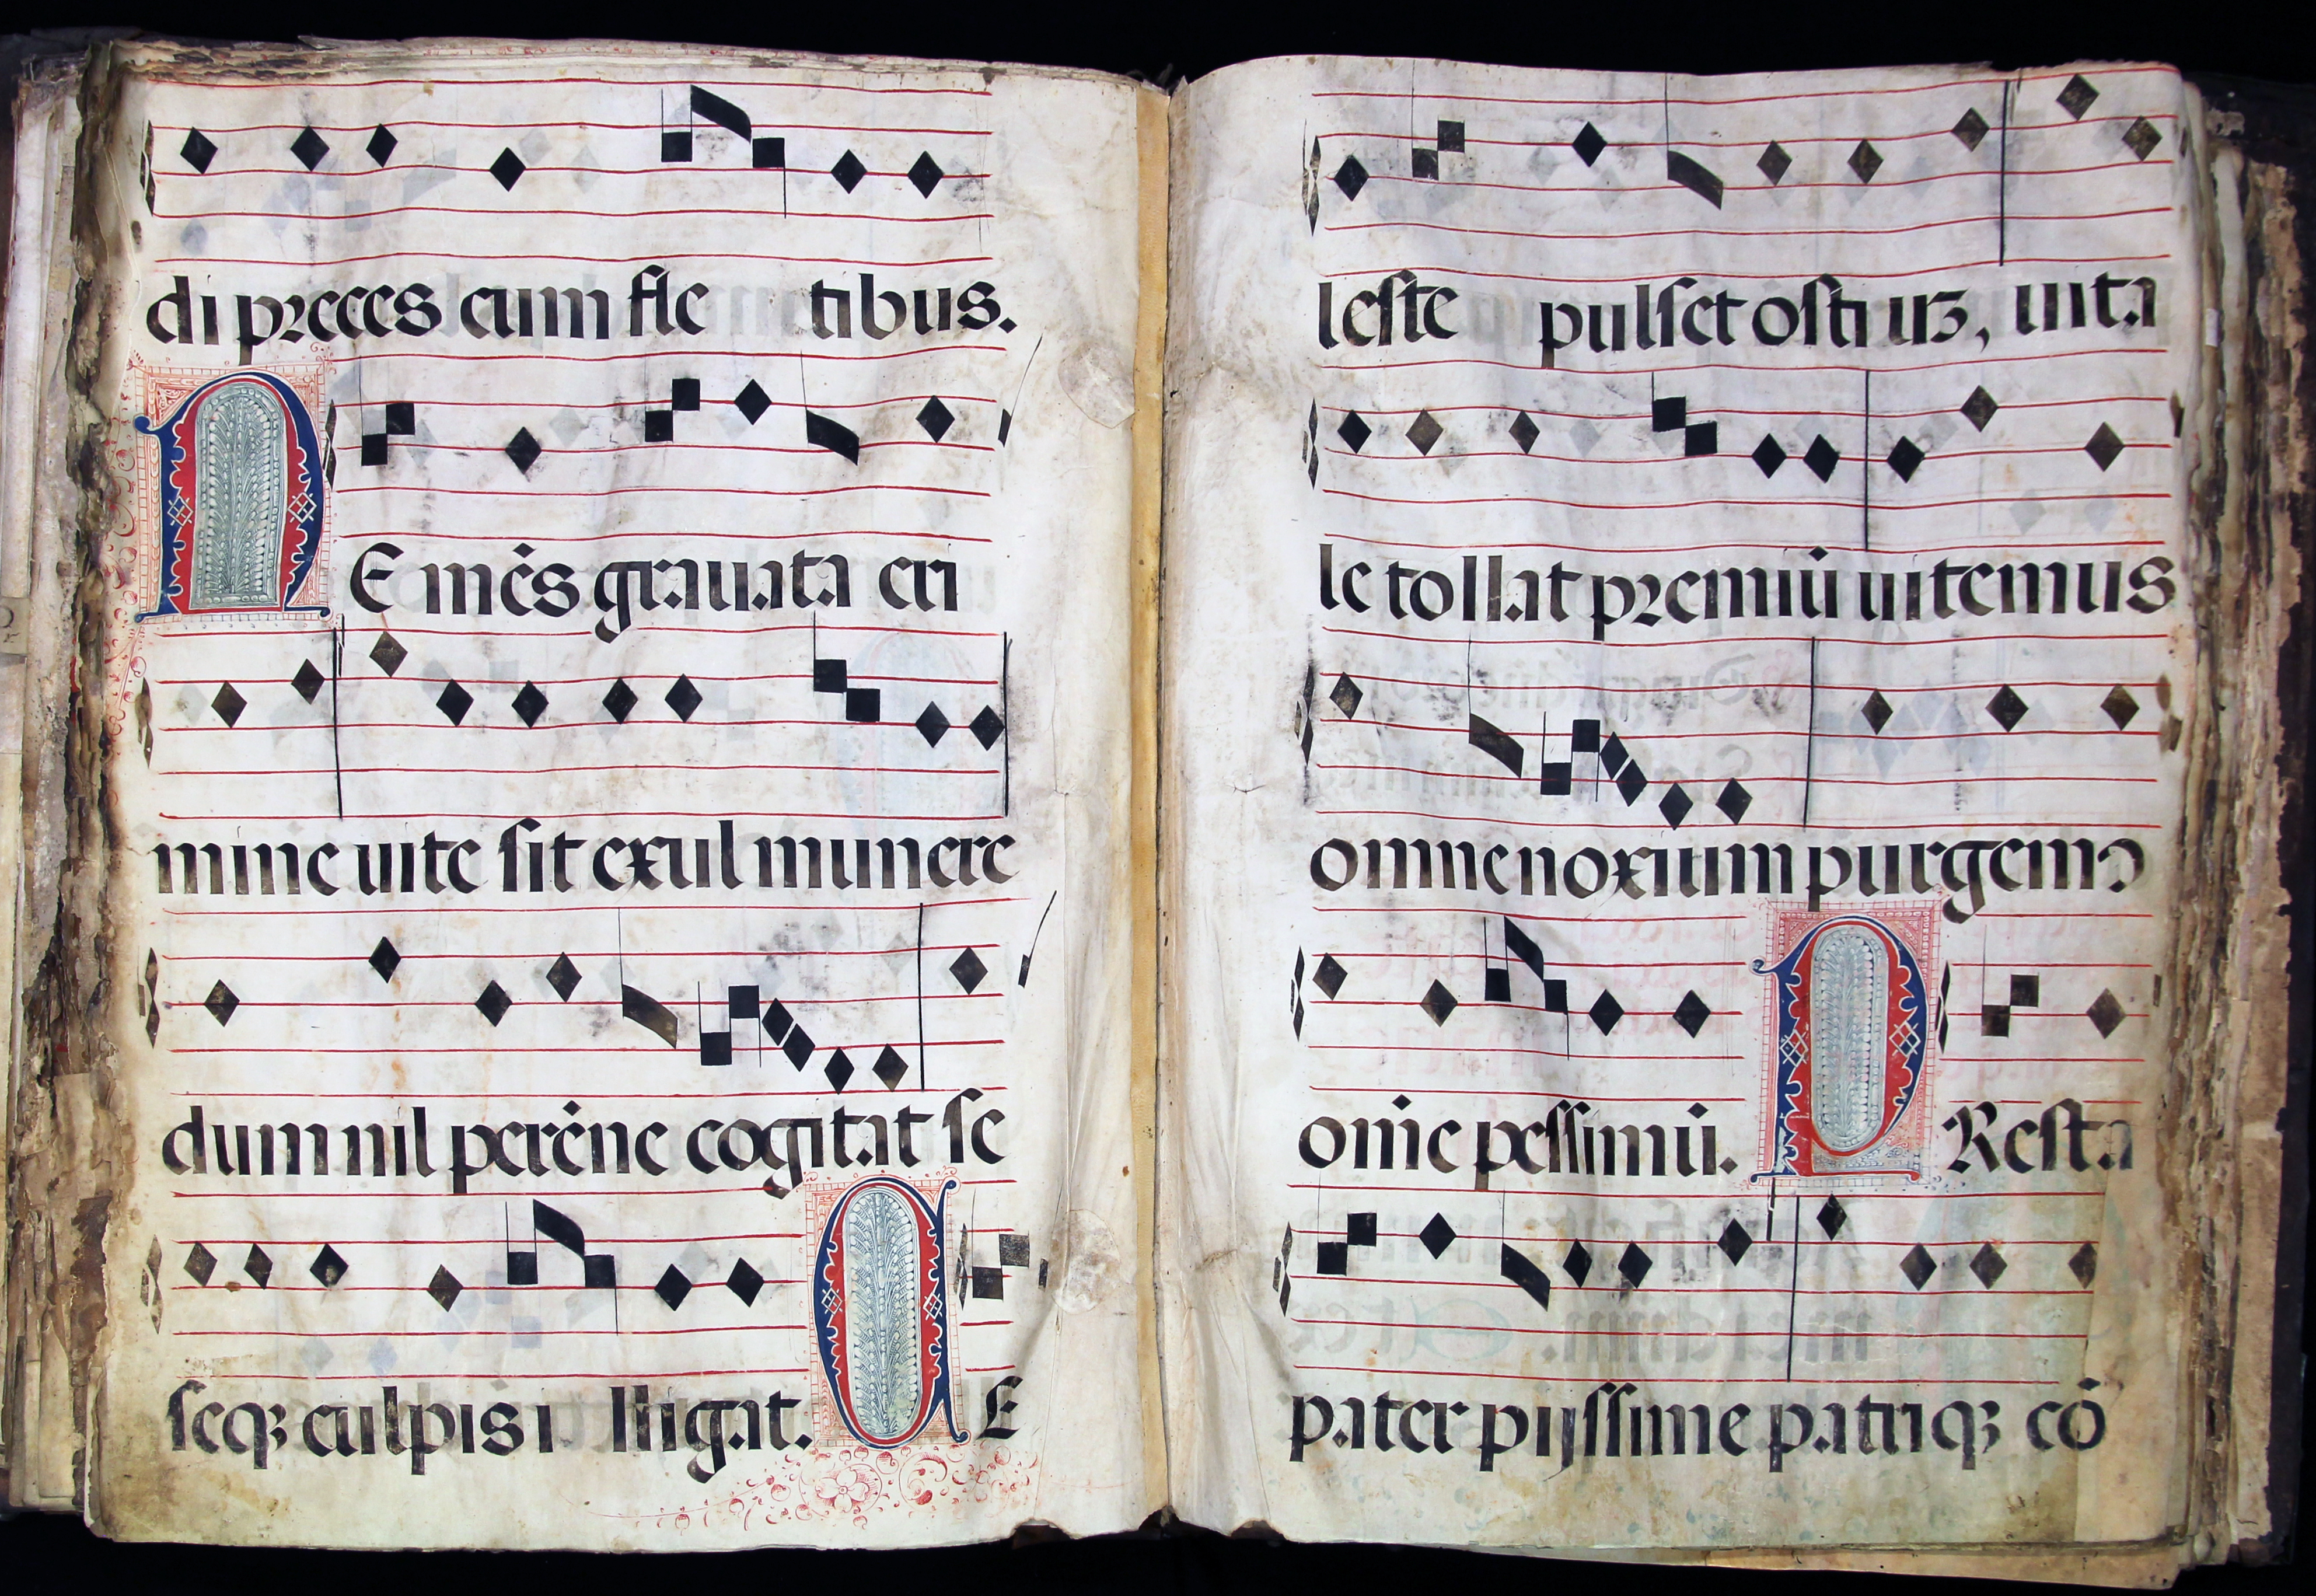 di preces cum fle tibus.
NE mēs grauata cri
mine uite sit exul munere
dum nil perēne cogitat se
seqꝫ culpis i lligat. CE
leste pulset ostiuꝫ, uita
le tollat premiū uitemus
omne noxium purgemꝰ
om̄e pessimū. PResta
pater pijssime patriqꝫ cō